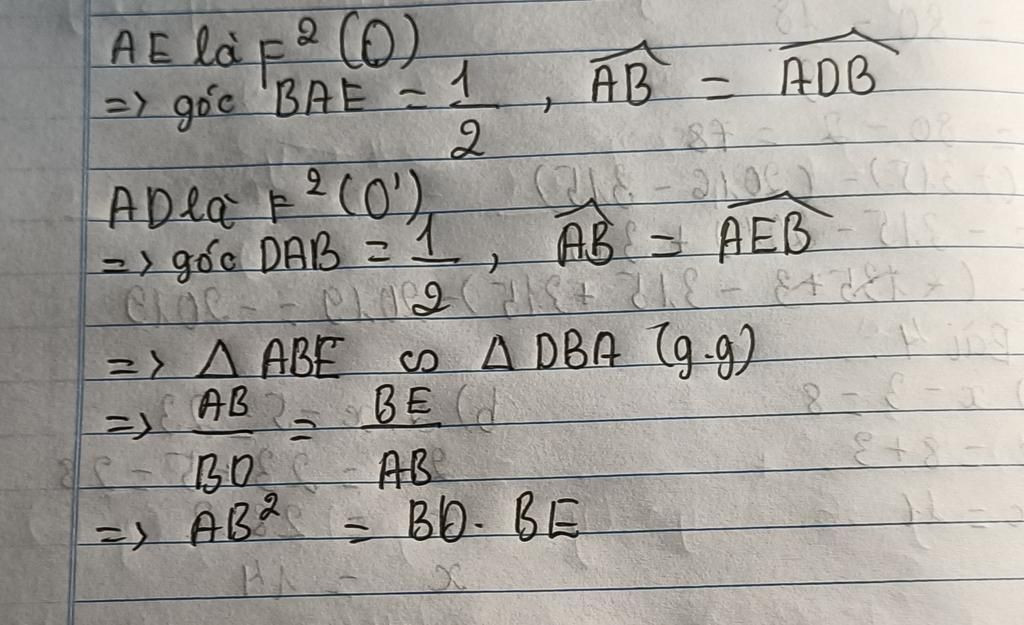 AE là F² (O)
=> góc BAE = 1/2, AB = ADB
AD là F² (O')
=> góc DAB = 1/2, AB = AEB
=> Δ ABE ∽ Δ DBA (g.g)
=> AB/BD = BE/AB
=> AB² = BD. BE